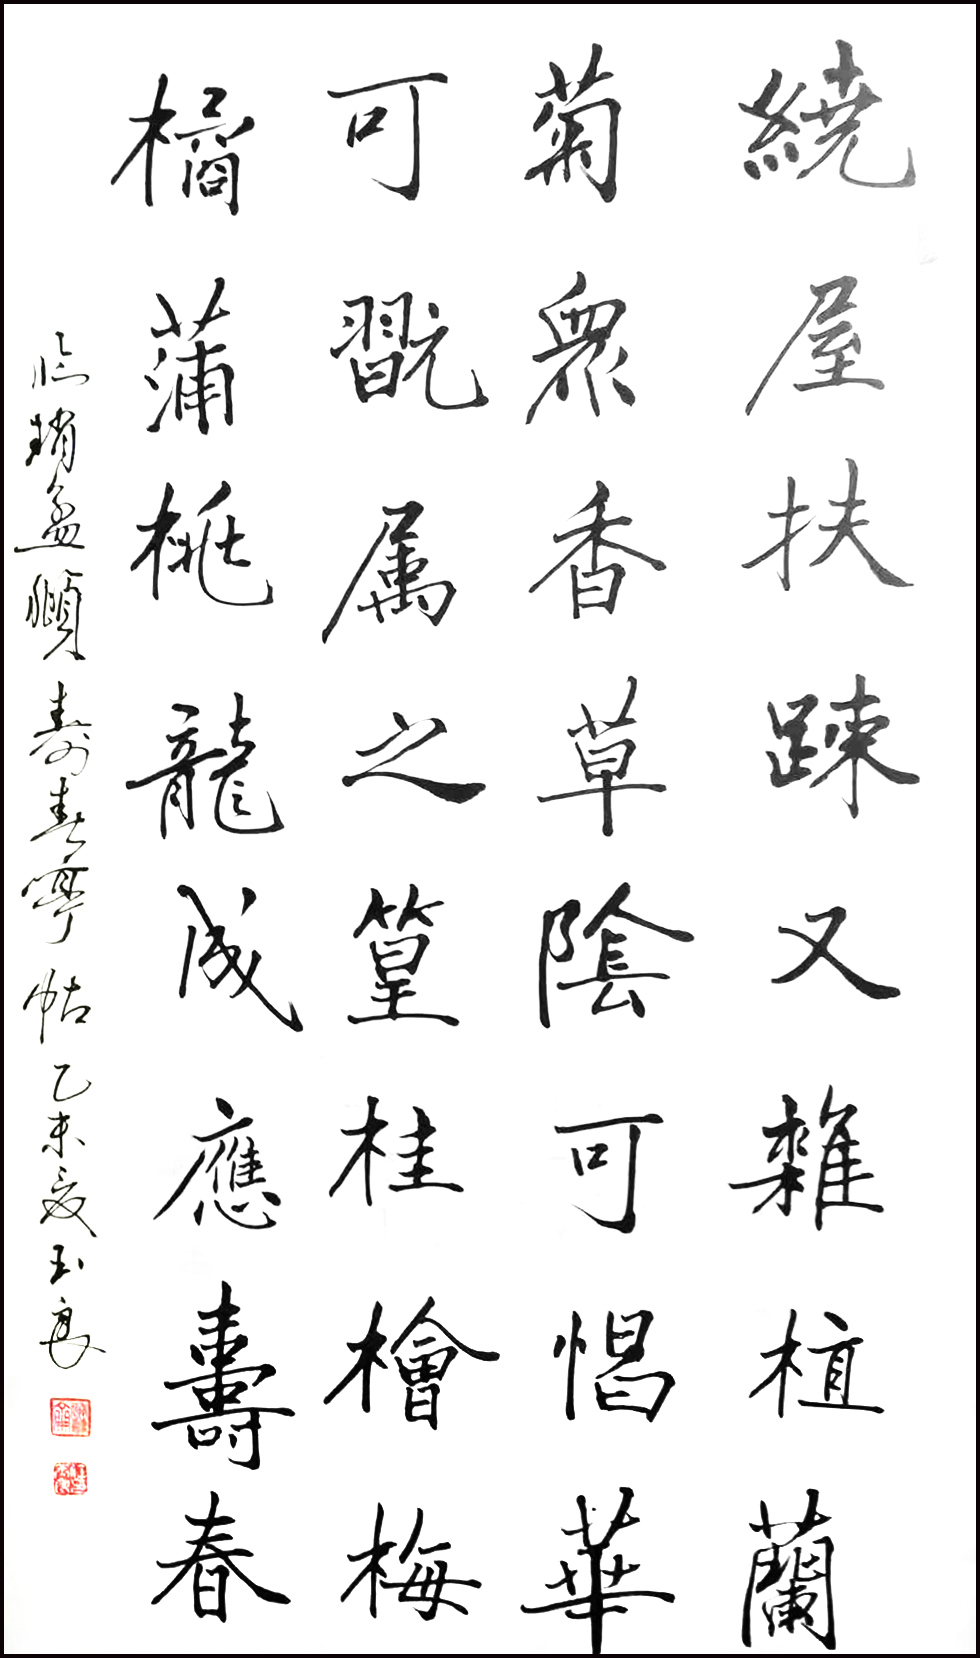 繞屋扶踈又雜植蘭
菊衆香草陰可愒華
可翫属之篁桂檜梅
橘蒲桃龍成應壽春
临趙孟頫壽春亭帖乙未夏玉良